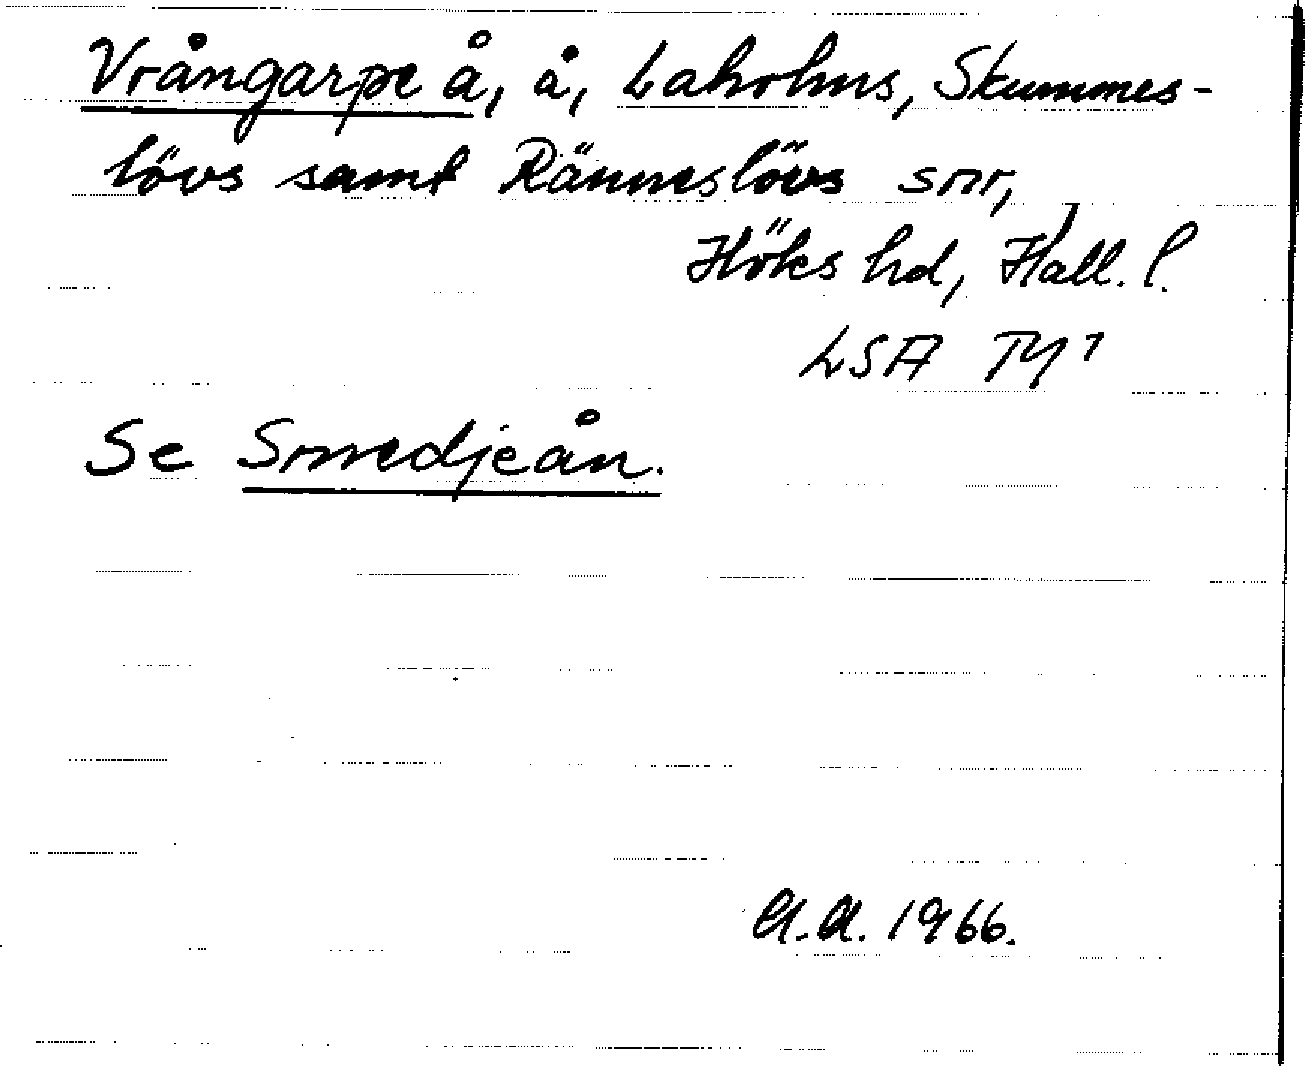 Vrångarpe å, å, Laholms, Skummes-
lövs samt Ränneslövs snr,
Höks hd, Hall. l.
LSA
Se Smedjeån.
A.A. 1966.